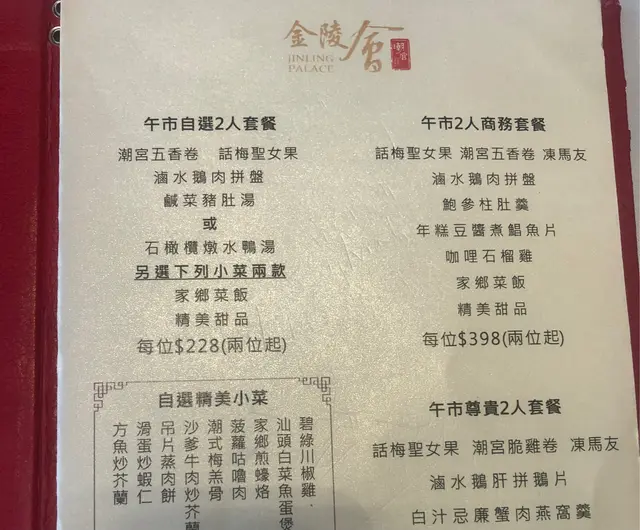 金陵會
JINLING
PALACE
午市自選2人套餐
潮宮五香卷 話梅聖女果
滷水鵝肉拼盤
鹹菜豬肚湯
或
石橄欖燉水鴨湯
另選下列小菜兩款
家鄉菜飯
精美甜品
每位$228(兩位起)
自選精美小菜
碧綠川椒雞
汕頭白菜魚蛋煲
家鄉煎蠔烙
菠蘿咕嚕肉
潮式梅羔骨
沙爹牛肉炒芥蘭
吊片蒸肉餅
滑蛋炒蝦仁
方魚炒芥蘭
午市2人商務套餐
話梅聖女果 潮宮五香卷 凍馬友
滷水鵝肉拼盤
鮑參柱肚羹
年糕豆醬煮鯧魚片
咖哩石榴雞
家鄉菜飯
精美甜品
每位$398(兩位起)
午市尊貴2人套餐
話梅聖女果 潮宮脆雞卷 凍馬友
滷水鵝肝拼鵝片
白汁忌廉蟹肉燕窩羹